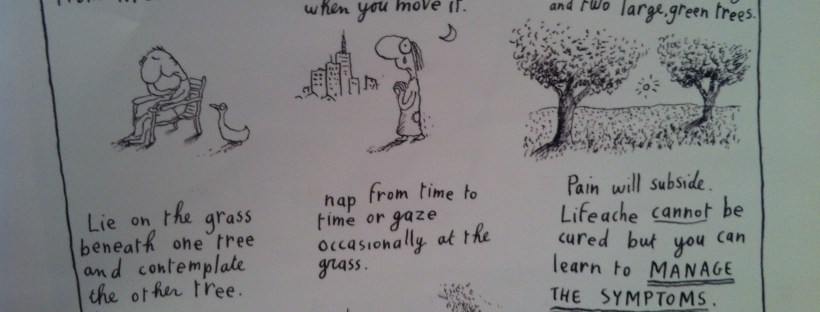 when you move it.
and two large, green trees.
Lie on the grass
beneath one tree
and contemplate
the other tree.
nap from time to
time or gaze
occasionally at the
grass.
Pain will subside.
Lifeache cannot be
cured but you can
learn to MANAGE
THE SYMPTOMS.